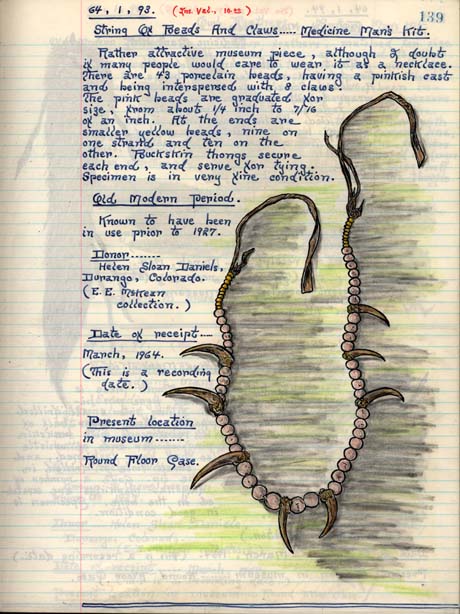 64. 1. 93. (Ins. Val., 10.00)
139
String Of Beads And Claws.... Medicine Man's Kit.
Rather attractive museum piece, although I doubt
if many people would care to wear it as a necklace.
There are 43 porcelain beads, having a pinkish cast
and being interspersed with 8 claws.
The pink beads are graduated for
size, from about 1/4 inch to 7/16
of an inch. At the ends are
smaller yellow beads, nine on
one strand and ten on the
other. Buckskin thongs secure
each end, and serve for tying.
Specimen is in very fine condition.
Old Modern Period.
Known to have been
in use prior to 1927.
Donor.......
Helen Sloan Daniels,
Durango, Colorado.
(E. E. McKean
collection.)
Date of receipt....
March, 1964.
(This is a recording
date.)
Present location
in museum.......
Round Floor Case.